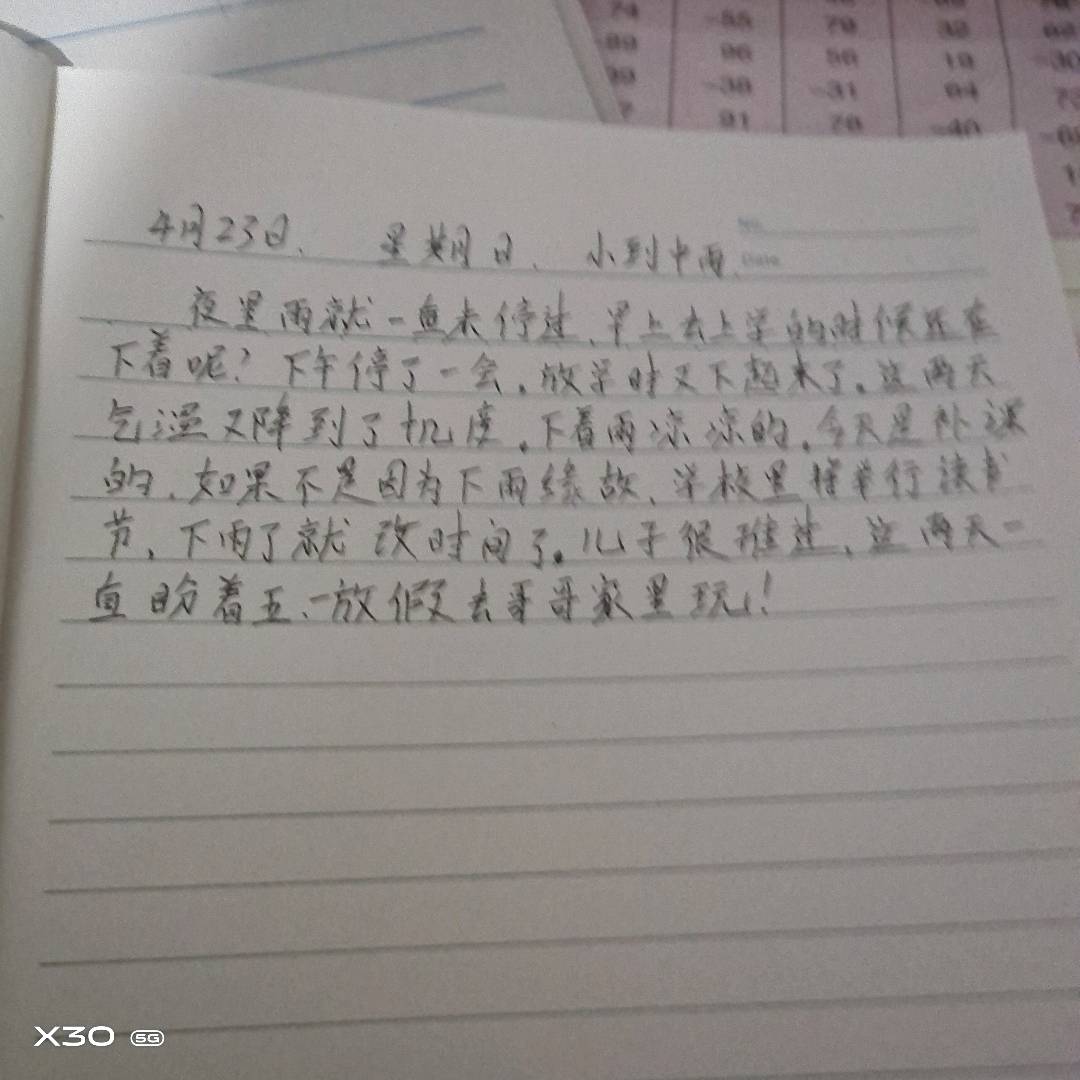 74 -55 70
-89 96 56 32
39 -38 -31 19 -30
7 91 70 64
-40
No.
4月23日、 星期日、 小到中雨、 Date
夜里雨就一直未停过,早上去上学的时候还在
下着呢?下午停了一会,放学时又下起来了。这两天
气温又降到了十几度,下着雨凉凉的。今天是补课
的,如果不是因为下雨缘故,学校里将举行读书
节,下雨了就改时间了。儿子很难过,这两天一
直盼着五、一放假去哥哥家里玩!
X30 5G